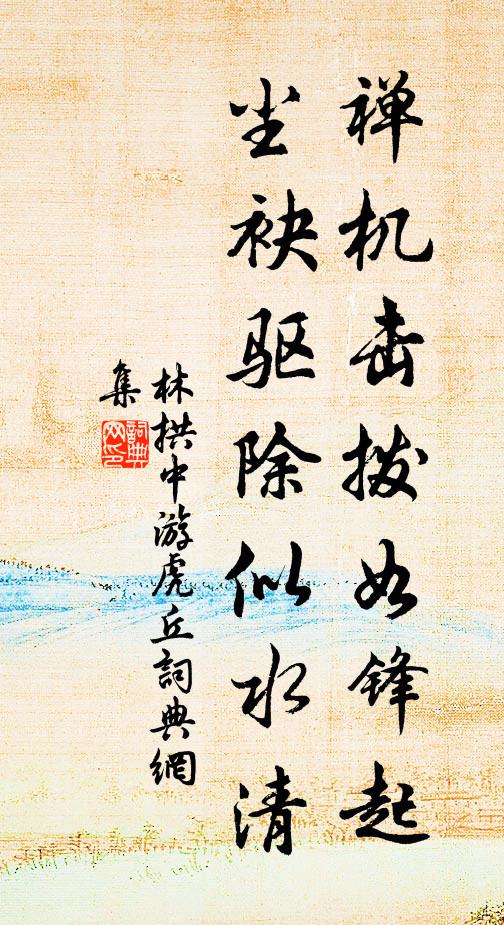 禅机击拨如锋起
尘袂驱除似水清
林拱中游虎丘詞典網
集
詞典网印